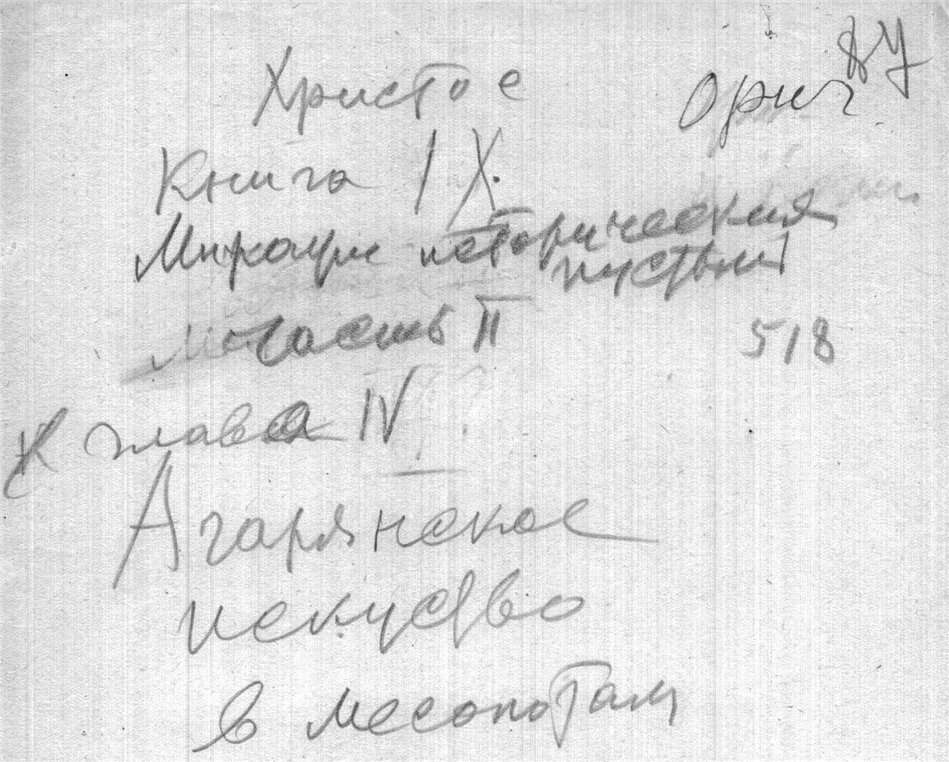 Христос
КУ
Ориг.
Книга IX.
Миражи исторических
пустынь
часть II
518
К глава IV
Агарянское
искуство
в месопотам